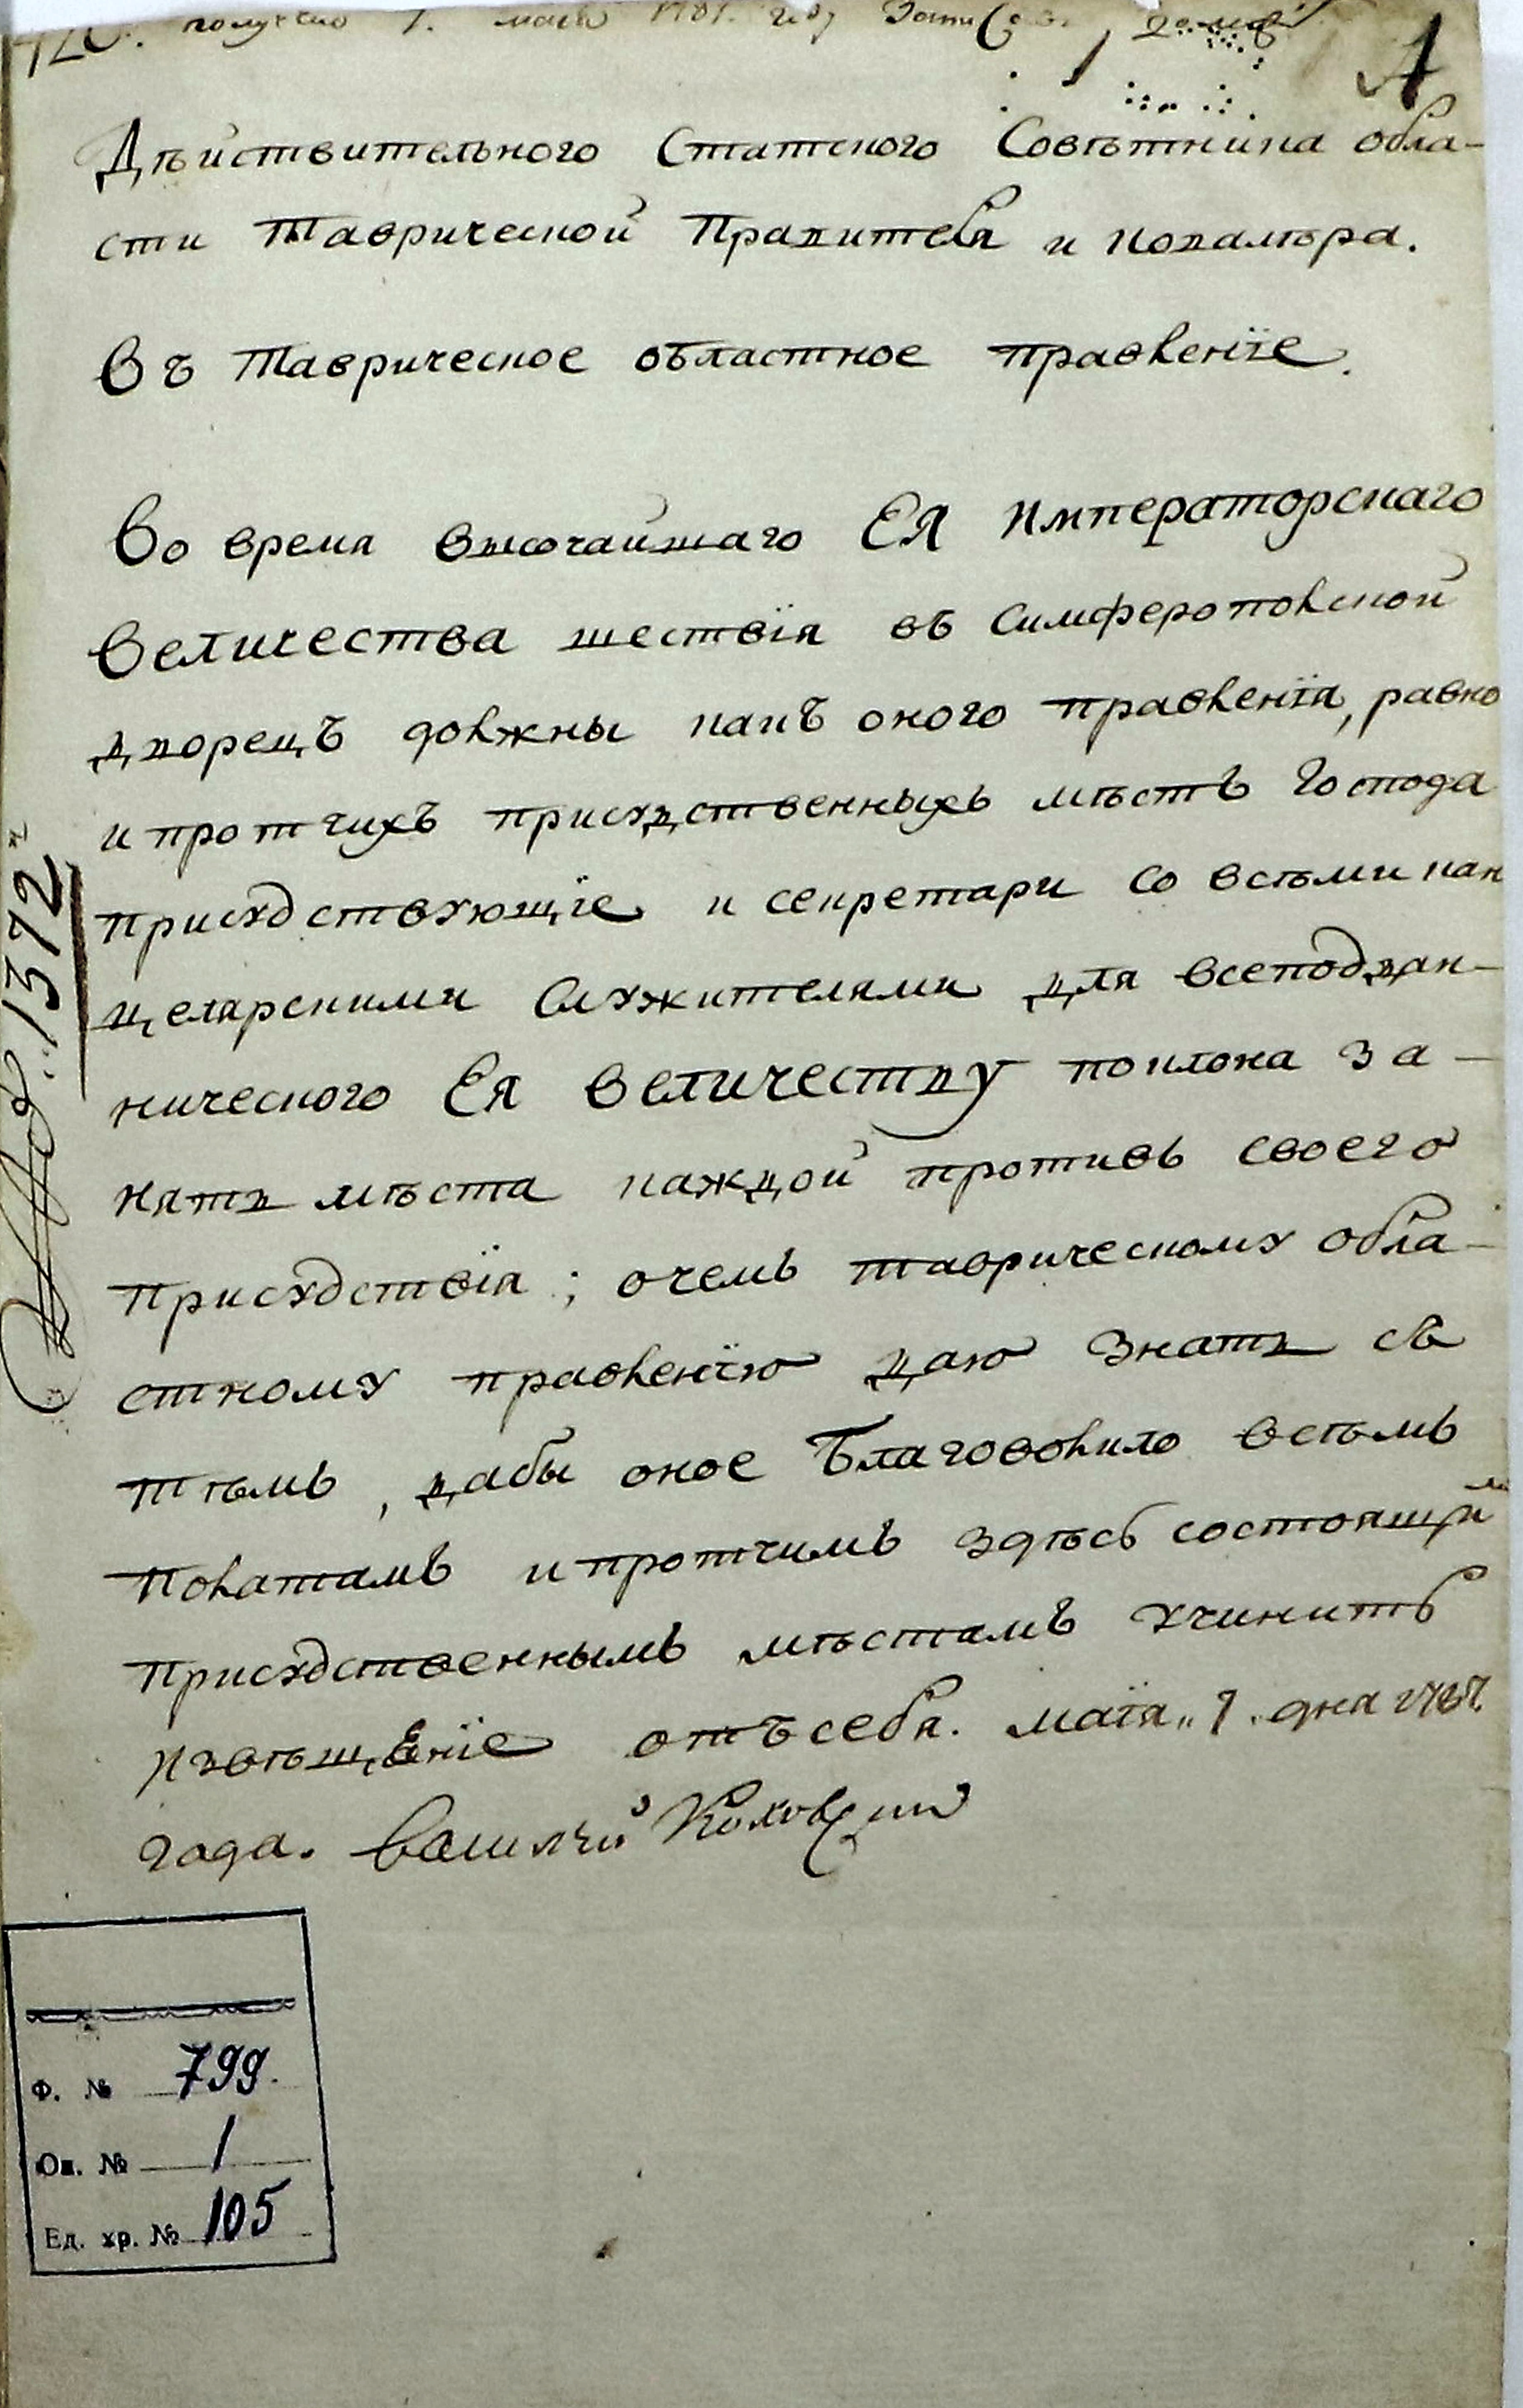 получено 7. маія 1787. году
1
Дѣйствительного Статского Совѣтника обла-
сти Таврической Правителя и ковалѣра.
Въ Таврическое областное правленіе.
Во время высочайшаго ЕЯ Императорскаго
Величества шествія въ Симферопольской
дворецъ должны какъ оного правленія, равно
и протчихъ присудственныхъ мѣстъ Господа
присудствующіе и секретари со всѣми кан
целярскими Служителями для всеподдан-
нического Ея Величеству поклона за-
нять мѣста каждой противъ своего
присудствія; очемъ таврическому обла-
стному правленію даю знать съ
тѣмъ, дабы оное Благоволило всѣмъ
Полатамъ и протчимъ здѣсь состоящим
присудственнымъ мѣстамъ учинить
извѣщеніе отъ себя. маія „7„ дня 1787.
года. Василий Коховский
1372
Ф. № 799.
Оп. № 1
Ед. хр. № 105